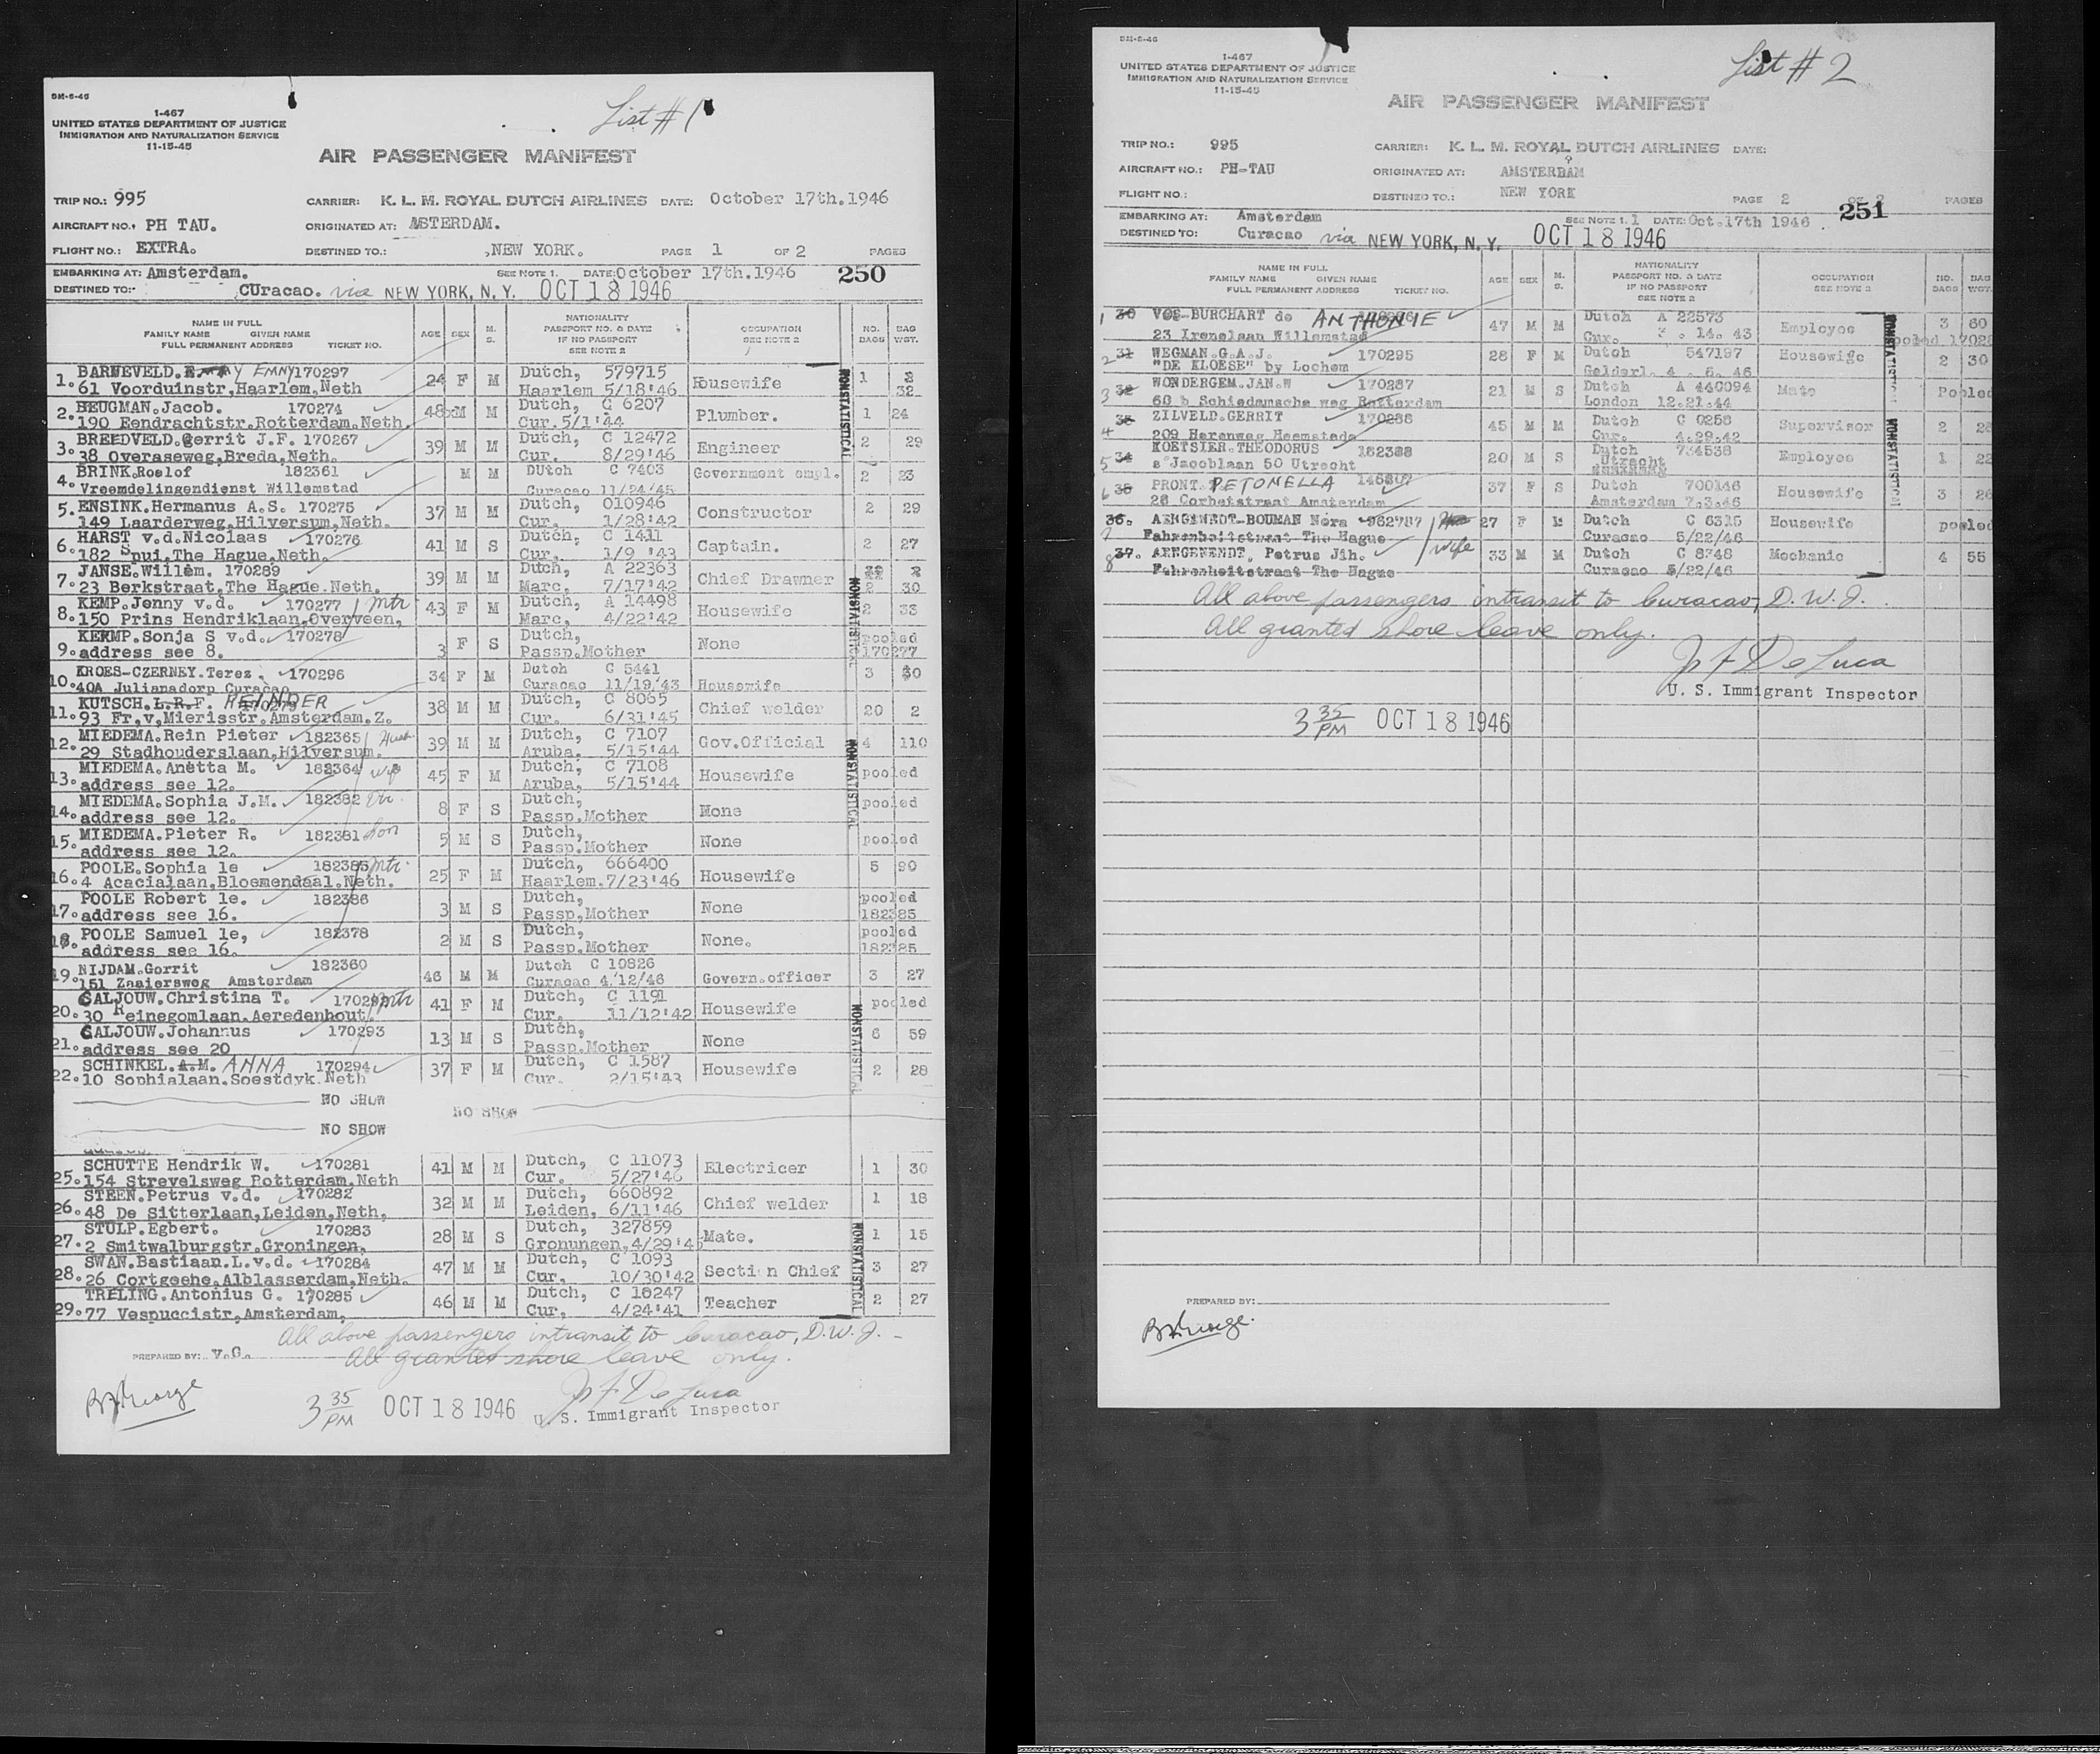 BM-6-46
List # 1
I-467
UNITED STATES DEPARTMENT OF JUSTICE
IMMIGRATION AND NATURALIZATION SERVICE
11-15-45
AIR PASSENGER MANIFEST
TRIP NO.: 995 CARRIER: K. L. M. ROYAL DUTCH AIRLINES DATE: October 17th.1946
AIRCRAFT NO.: PH TAU. ORIGINATED AT: AMSTERDAM.
FLIGHT NO.: EXTRA. DESTINED TO: NEW YORK. PAGE 1 OF 2 PAGES
EMBARKING AT: Amsterdam. SEE NOTE 1. DATE: October 17th.1946 250
DESTINED TO: CUracao. via NEW YORK, N. Y. OCT 18 1946
NAME IN FULL
FAMILY NAME GIVEN NAME
FULL PERMANENT ADDRESS TICKET NO.
AGE SEX M. S.
NATIONALITY
PASSPORT NO. & DATE
IF NO PASSPORT
SEE NOTE 2
OCCUPATION
SEE NOTE 2
NO. BAGS
BAG WGT.
1. BARNEVELD. EMNY 170297 24 F M Dutch, 579715 Housewife 1
61 Voorduinstr,Haarlem,Neth Haarlem 5/18'46 32
2. BEUGMAN.Jacob. 170274 48 M M Dutch, C 6207 Plumber. 1 24
190 Eendrachtstr.Rotterdam.Neth. Cur.5/1'44
3. BREEDVELD.Gerrit J.F. 170267 39 M M Dutch, C 12472 Engineer 2 29
38 Overaseweg,Breda,Neth. Cur. 8/29'46
4. BRINK.Roelof 182361 M M DUtch C 7403 Government empl. 2 23
Vreemdelingendienst Willemstad Curacao 11/24/45
5. ENSINK.Hermanus A.S. 170275 37 M M Dutch, 010946 Constructor 2 29
149 Laarderweg,Hilversum,Neth. Cur. 1/28'42
6. HARST v.d.Nicolaas 170276 41 M S Dutch, C 1411 Captain. 2 27
182 Spui.The Hague.Neth. Cur. 1/9 '43
7. JANSE.Willem. 170289 39 M M Dutch, A 22363 Chief Drawner
23 Berkstraat.The Hague.Neth. Marc. 7/17'42 2 30
8. KEMP.Jenny v.d. 170277 mtr 43 F M Dutch, A 14498 Housewife 2 33
150 Prins Hendriklaan,Overveen, Marc, 4/22'42
9. KERMP.Sonja S v.d. 170278 3 F S Dutch, None pooled
address see 8. Passp.Mother 170277
10. KROES-CZERNEY.Terez. 170296 34 F M Dutch C 5441 Housewife 3 30
40A Julianadorp Curacao Curacao 11/19/43
11. KUTSCH.L.R.F. REINDER 38 M M Dutch, C 8065 Chief welder 20 2
93 Fr.v,Mierisstr.Amsterdam.Z. Cur. 6/31'45
12. MIEDEMA.Rein Pieter 182365 Husb 39 M M Dutch, C 7107 Gov.Official 4 110
29 Stadhouderslaan,Hilversum. Aruba. 5/15'44
13. MIEDEMA.Anetta M. 182364 wife 45 F M Dutch, C 7108 Housewife pooled
address see 12. Aruba, 5/15'44
14. MIEDEMA.Sophia J.M. 182382 8 F S Dutch, None pooled
address see 12. Passp.Mother
15. MIEDEMA.Pieter R. 182381 son 5 M S Dutch, None pooled
address see 12. Passp.Mother
16. POOLE.Sophia le 182385 mtr. 25 F M Dutch, 666400 Housewife 5 90
4 Acacialaan,Bloemendaal.Neth. Haarlem.7/23'46
17. POOLE Robert le. 182386 3 M S Dutch, None pooled
address see 16. Passp,Mother 182385
18. POOLE Samuel le, 182378 2 M S Dutch, None. pooled
address see 16. Passp.Mother 182385
19. NIJDAM.Gorrit 182360 46 M M Dutch C 10826 Govern.officer 3 27
151 Zaaiersweg Amsterdam Curacao 4/12/46
20. SALJOUW.Christina T. mtr 41 F M Dutch, C 1191 Housewife pooled
30 Reinegomlaan.Aeredenhout Cur. 11/12'42
21. SALJOUW.Johannus 170293 13 M S Dutch, None 6 59
address see 20 Passp.Mother
22. SCHINKEL.A.M. ANNA 170294 37 F M Dutch, C 1587 Housewife 2 28
10 Sophialaan.Soestdyk.Neth Cur. 2/15'43
NO SHOW
NO SHOW
NO SHOW
25. SCHUTTE Hendrik W. 170281 41 M M Dutch, C 11073 Electricer 1 30
154 Strevelsweg Rotterdam.Neth Cur. 5/27'46
26. STEEN.Petrus v.d. 170282 32 M M Dutch, 660892 Chief welder 1 18
48 De Sitterlaan,Leiden,Neth, Leiden, 6/11'46
27. STULP.Egbert. 170283 28 M S Dutch, 327859 Mate. 1 15
2 Smitwalburgstr.Groningen, Gronungen,4/29'4
28. SWAN.Bastiaan.L.v.d. 170284 47 M M Dutch, C 1093 Secti n Chief 3 27
26 Cortgeehe.Alblasserdam,Neth. Cur. 10/30'42
29. TRELING.Antonius G. 170285 46 M M Dutch, C 10247 Teacher 2 27
77 Vespuccistr,Amsterdam, Cur, 4/24'41
NONSTATISTICAL
NONSTATISTICAL
NONSTATISTICAL
NONSTATISTICAL
NONSTATISTICAL
All above passengers intransit to Curacao, D.W.I.
PREPARED BY: V.G. All granted shore leave only.
3 35 PM OCT 18 1946
U. S. Immigrant Inspector
BM-6-46
List # 2
I-467
UNITED STATES DEPARTMENT OF JUSTICE
IMMIGRATION AND NATURALIZATION SERVICE
11-15-45
AIR PASSENGER MANIFEST
TRIP NO.: 995 CARRIER: K. L. M. ROYAL DUTCH AIRLINES DATE:
AIRCRAFT NO.: PH-TAU ORIGINATED AT: AMSTERDAM
FLIGHT NO.: DESTINED TO: NEW YORK PAGE 2 OF 2 PAGES
EMBARKING AT: Amsterdam SEE NOTE 1. 1 DATE: Oct.17th 1946 251
DESTINED TO: Curacao via NEW YORK, N. Y. OCT 18 1946
NAME IN FULL
FAMILY NAME GIVEN NAME
FULL PERMANENT ADDRESS TICKET NO.
AGE SEX M. S.
NATIONALITY
PASSPORT NO. & DATE
IF NO PASSPORT
SEE NOTE 2
OCCUPATION
SEE NOTE 2
NO. BAGS
BAG WGT.
1 30 VOS-BURCHART de ANTHONIE 47 M M Dutch A 22573 Employee 3 60
23 Irenelaan Willemstad Cur. 14. 43
2 31 WEGMAN.G.A.J. 170295 28 F M Dutch 547197 Housewige 2 30
"DE KLOESE" by Lochem Gelderl. 4 . 5. 46
3 32 WONDERGEM.JAN.W 170287 21 M S Dutch A 440094 Mate Pooled
60 b Schiedamsche weg Rotterdam London 12.21.44
4 33 ZILVELD.GERRIT 170288 45 M M Dutch C 0258 Supervisor 2
209 Herenweg Heemstede Cur. 4.29.42
5 34 KOETSIER.THEODORUS 182388 20 M S Dutch 734538 Employee 1 22
s'Jacoblaan 50 Utrecht Utrecht
6 35 PRONT. PETONELLA 37 F S Dutch 700146 Housewife 3
28 Corbetstraat Amsterdam Amsterdam 7.3.46
7 36. AENGENENDT-BOUMAN Nora 27 F M Dutch C 8315 Housewife pooled
Fahrenheitstraat The Hague Curacao 5/22/46
8 37. AENGENENDT, Petrus Jih. wife 33 M M Dutch C 8748 Mechanic 4 55
Fahrenheitstraat The Hague Curacao 5/22/46
NONSTATISTICAL
NONSTATISTICAL
All above passengers intransit to Curacao, D.W.I.
All granted shore leave only.
U. S. Immigrant Inspector
3 35 PM OCT 18 1946
PREPARED BY: